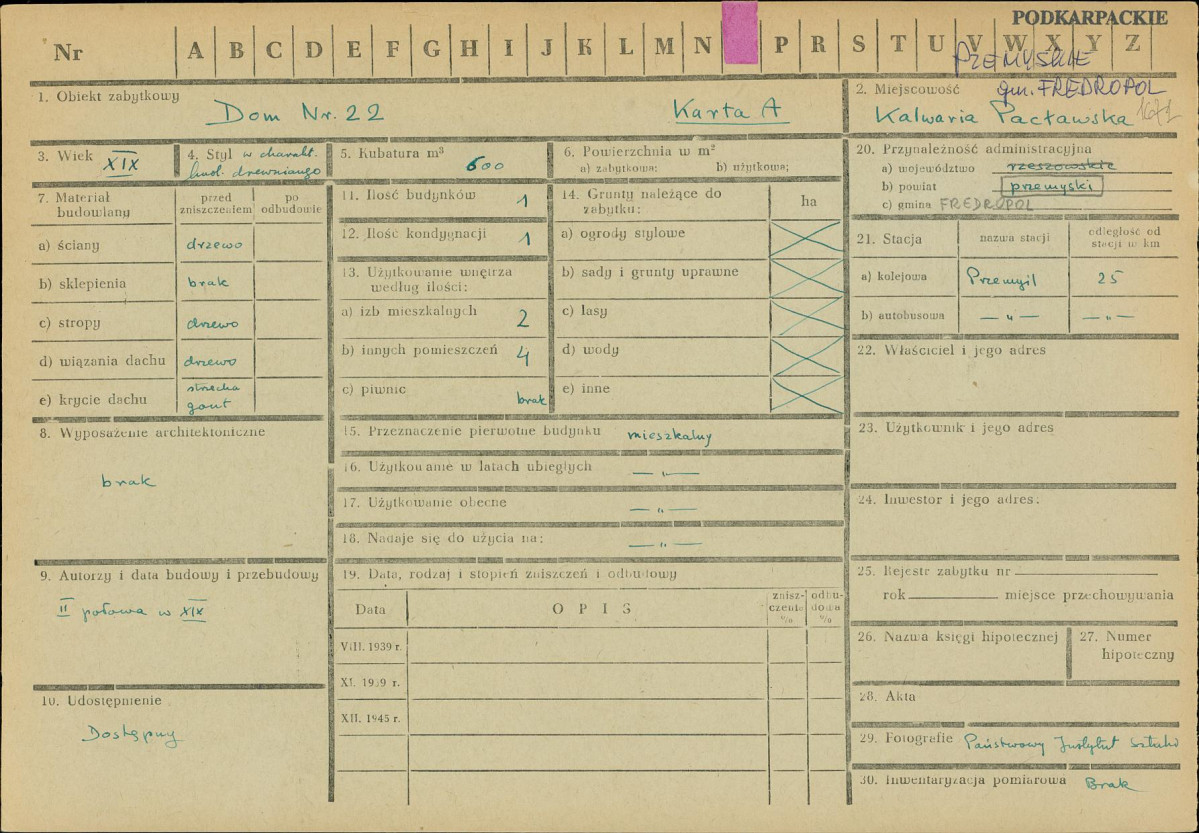 PODKARPACKIE
Nr A B C D E F G H I J K L M N P R S T U V W X Y Z
PRZEMYSKIE
gm. FREDROPOL
1. Obiekt zabytkowy
Dom Nr. 22 Karta A
2. Miejscowość
Kalwaria Pacławska
3. Wiek
XIX
4. Styl w charakt.
bud. drewnianego
5. Kubatura m³
600
6. Powierzchnia w m²
a) zabytkowa; b) użytkowa;
7. Materiał budowlany
przed zniszczeniem
po odbudowie
a) ściany drzewo
b) sklepienia brak
c) stropy drzewo
d) wiązania dachu drzewo
e) krycie dachu strzecha
gont
8. Wyposażenie architektoniczne
brak
9. Autorzy i data budowy i przebudowy
II połowa w XIX
10. Udostępnienie
Dostępny
11. Ilość budynków 1
12. Ilość kondygnacji 1
13. Użytkowanie wnętrza
według ilości:
a) izb mieszkalnych 2
b) innych pomieszczeń 4
c) piwnic brak
14. Grunty należące do
zabytku: ha
a) ogrody stylowe
b) sady i grunty uprawne
c) lasy
d) wody
e) inne
15. Przeznaczenie pierwotne budynku mieszkalny
16. Użytkowanie w latach ubiegłych — „ —
17. Użytkowanie obecne — „ —
18. Nadaje się do użycia na: — „ —
19. Data, rodzaj i stopień zniszczeń i odbudowy
Data OPIS znisz-
czenie
%
odbu-
dowa
%
VIII. 1939 r.
XI. 1939 r.
XII. 1945 r.
20. Przynależność administracyjna
a) województwo rzeszowskie
b) powiat przemyski
c) gmina FREDROPOL
21. Stacja nazwa stacji odległość od
stacji w km
a) kolejowa Przemyśl 25
b) autobusowa — „ — — „ —
22. Właściciel i jego adres
23. Użytkownik i jego adres
24. Inwestor i jego adres:
25. Rejestr zabytku nr
rok miejsce przechowywania
26. Nazwa księgi hipotecznej
27. Numer
hipoteczny
28. Akta
29. Fotografie Państwowy Instytut Sztuki
30. Inwentaryzacja pomiarowa Brak